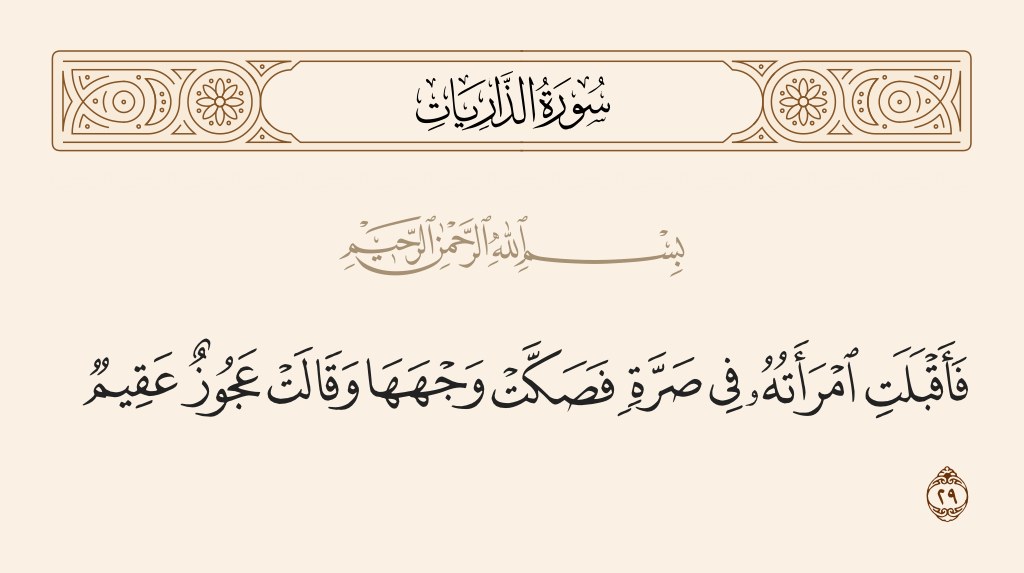 سُورَةُ الذَّارِيَاتِ
بِسْمِ ٱللَّهِ ٱلرَّحْمَٰنِ ٱلرَّحِيمِ
فَأَقْبَلَتِ ٱمْرَأَتُهُۥ فِى صَرَّةٍ فَصَكَّتْ وَجْهَهَا وَقَالَتْ عَجُوزٌ عَقِيمٌ
٢٩